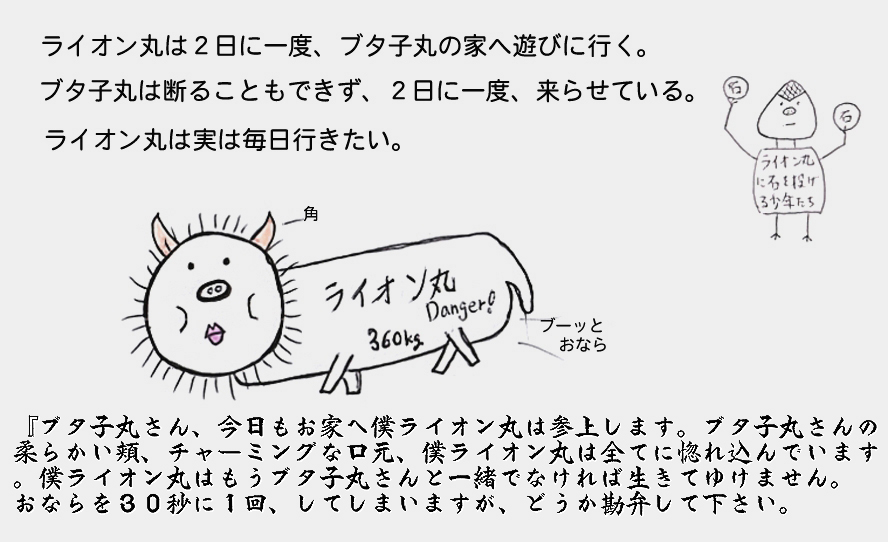 ライオン丸は２日に一度、ブタ子丸の家へ遊びに行く。
ブタ子丸は断ることもできず、２日に一度、来らせている。
ライオン丸は実は毎日行きたい。
石
石
ライオン丸
に石を投げ
る少年たち
角
ライオン丸
Danger!
360kg
ブーッと
おなら
『ブタ子丸さん、今日もお家へ僕ライオン丸は参上します。ブタ子丸さんの
柔らかい頬、チャーミングな口元、僕ライオン丸は全てに惚れ込んでいます
。僕ライオン丸はもうブタ子丸さんと一緒でなければ生きてゆけません。
おならを３０秒に１回、してしまいますが、どうか勘弁して下さい。